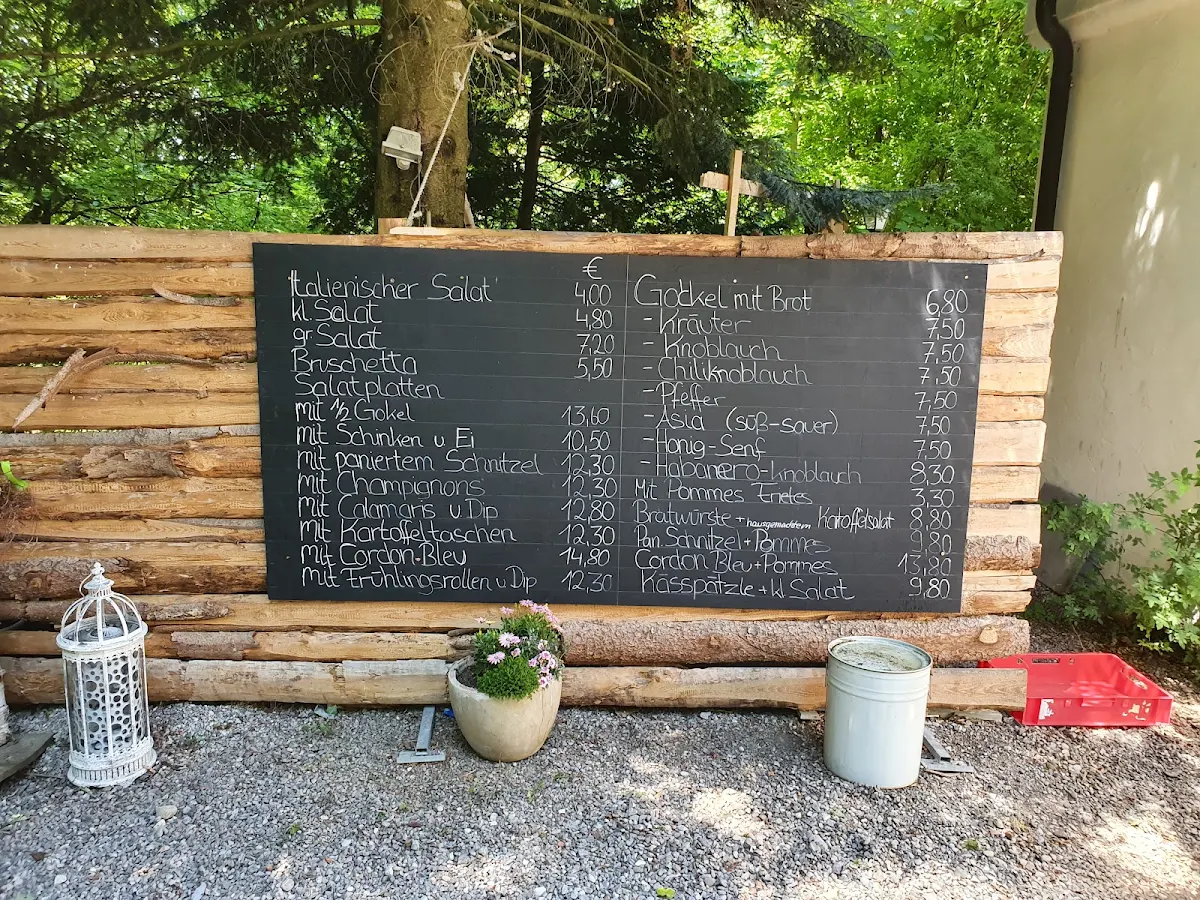 €
Italienischer Salat 4,00
kl. Salat 4,80
gr Salat 7,20
Bruschetta 5,50
Salatplatten
mit ½ Gokel 13,60
mit Schinken u Ei 10,50
mit paniertem Schnitzel 12,30
mit Champignons 12,30
mit Calamaris u. Dip 12,80
mit Kartoffeltaschen 12,30
mit Cordon-Bleu 14,80
mit Frühlingsrollen u Dip 12,30
Gockel mit Brot 6,80
- Kräuter 7,50
- Knoblauch 7,50
- Chiliknoblauch 7,50
- Pfeffer 7,50
- Asia (süß-sauer) 7,50
- Honig-Senf 7,50
- Habanero-Knoblauch 8,30
Mit Pommes Frietes 3,30
Bratwürste + hausgemachtem Kartoffelsalat 8,80
Pan Schnitzel + Pommes 9,80
Cordon Bleu + Pommes 13,80
Kässpätzle + kl Salat 9,80